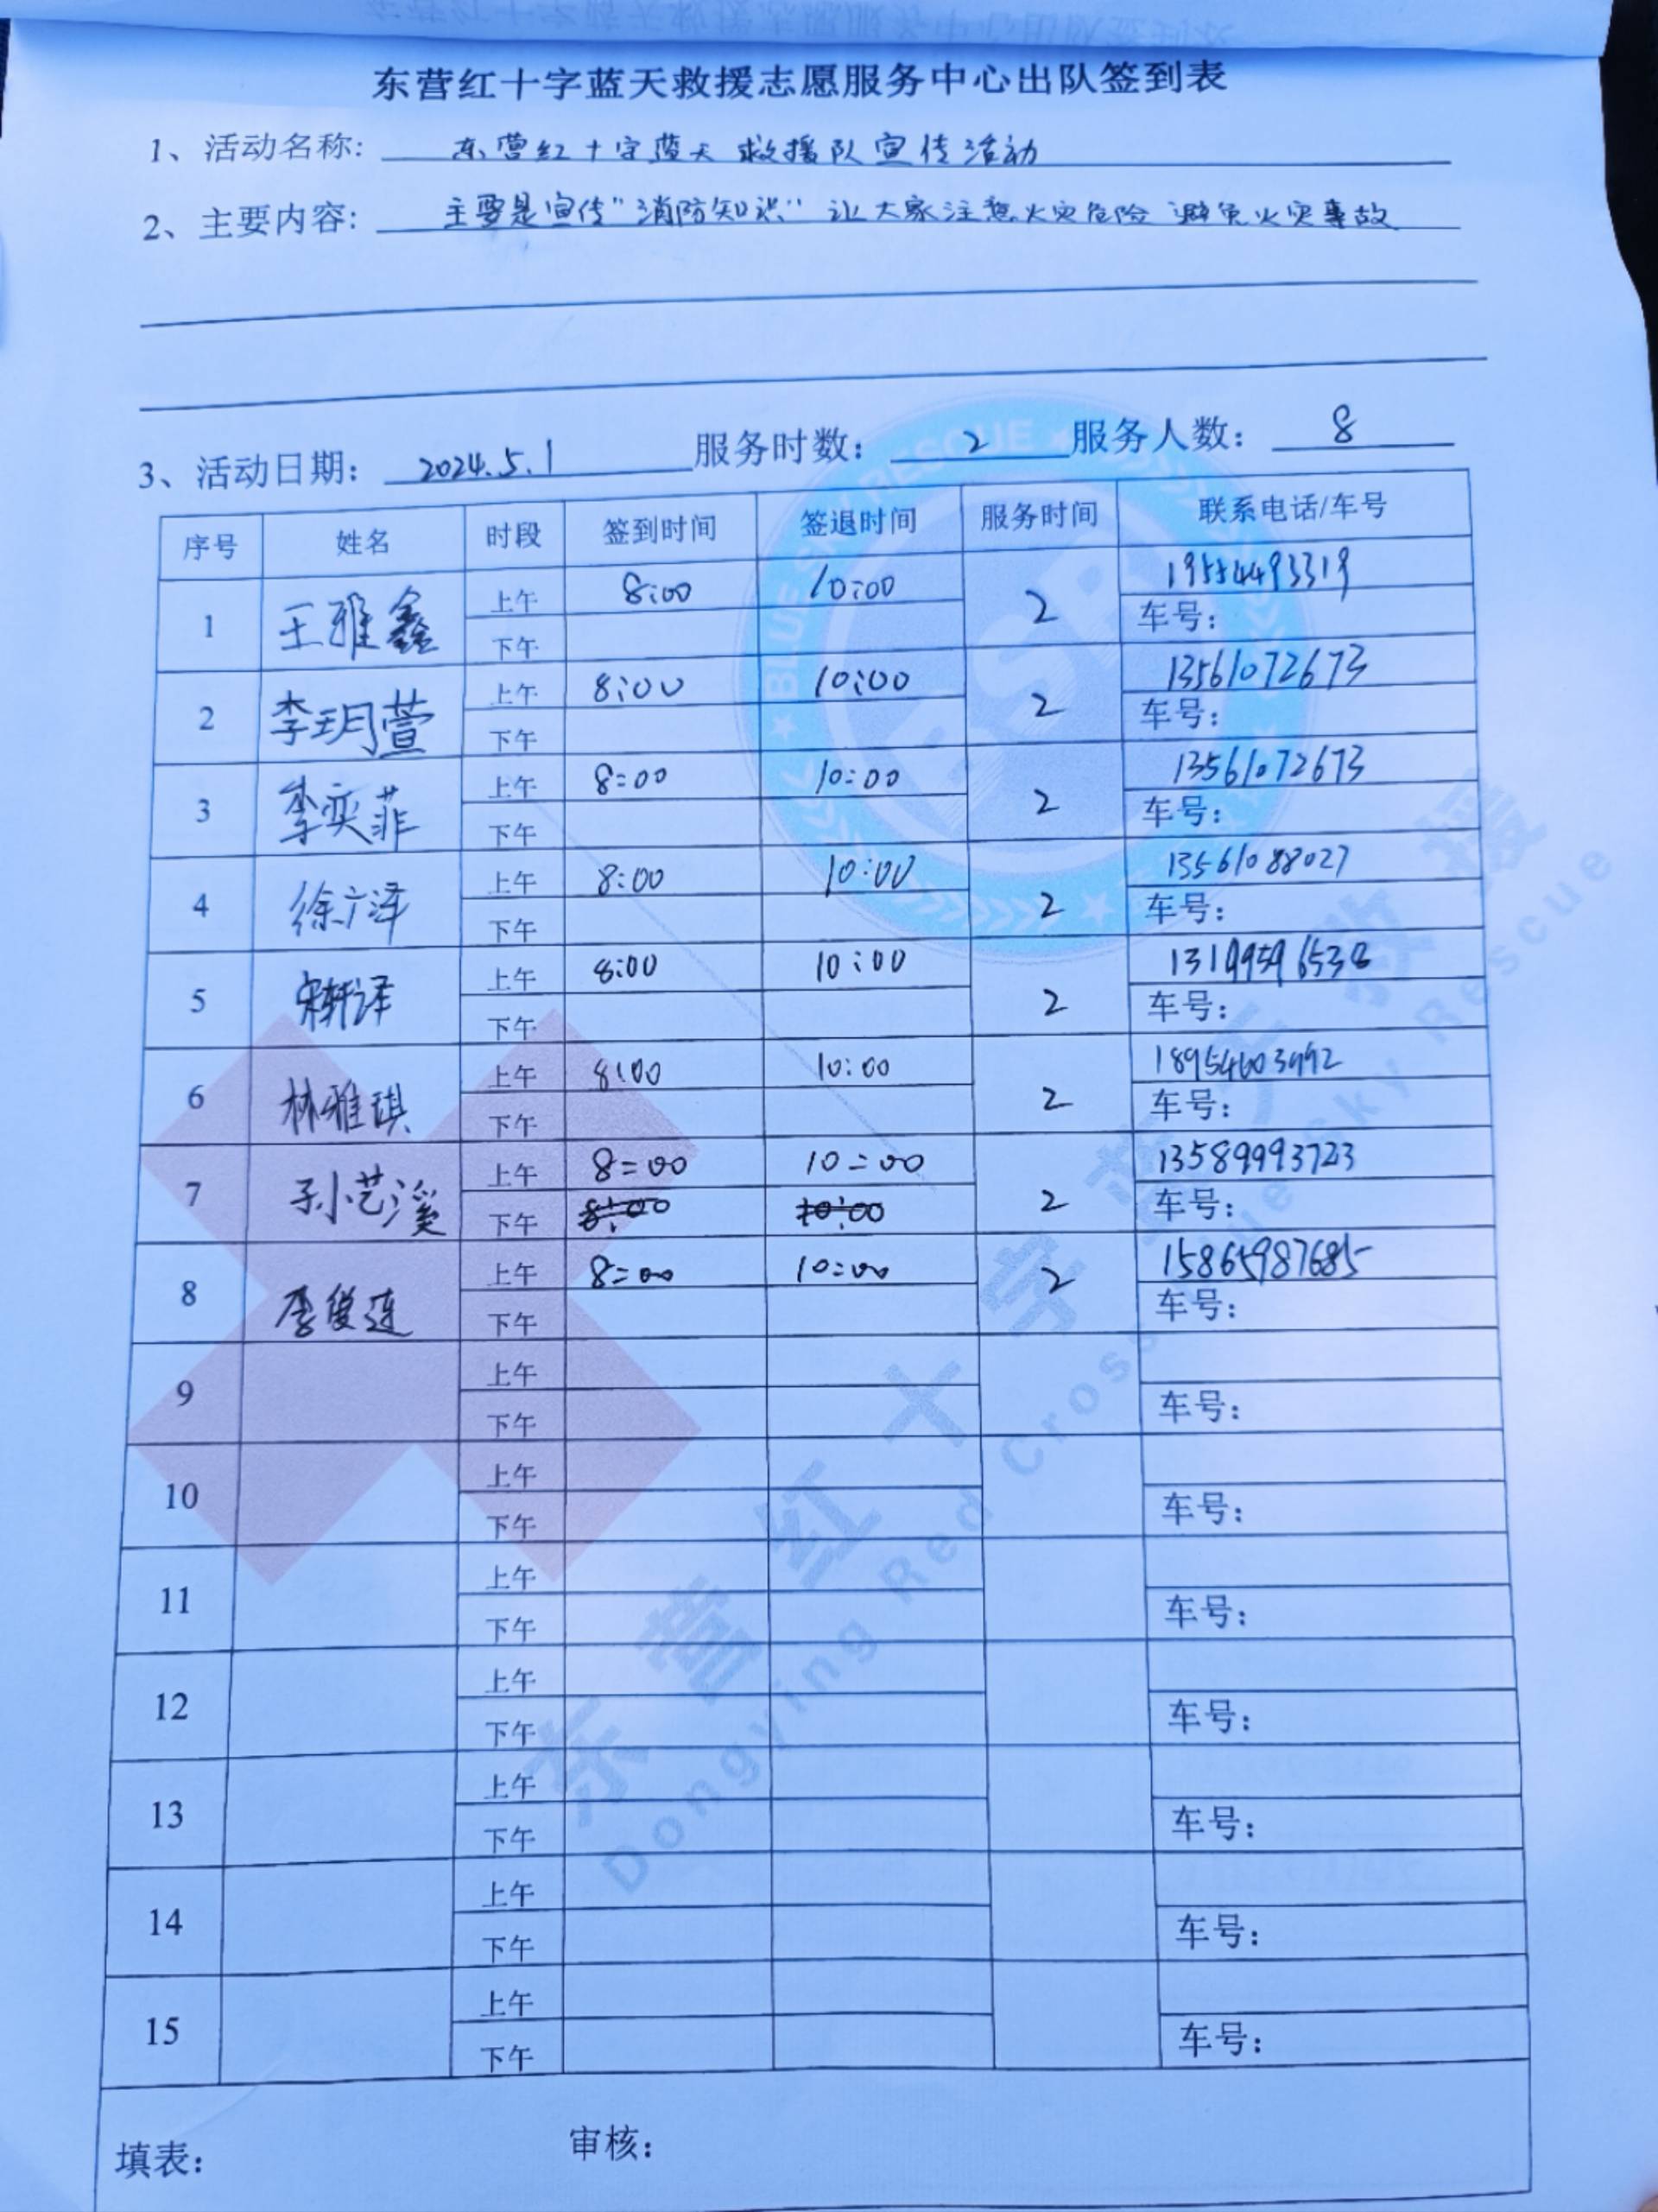 东营红十字蓝天救援志愿服务中心出队签到表
1、活动名称: 东营红十字蓝天救援队宣传活动
2、主要内容: 主要是宣传"消防知识" 让大家注意火灾危险 避免火灾事故
3、活动日期: 2024.5.1 服务时数: 2 服务人数: 8
序号 姓名 时段 签到时间 签退时间 服务时间 联系电话/车号
1 王雅鑫 上午 8:00 10:00 2 19554493319
下午 车号:
2 李玥萱 上午 8:00 10:00 2 13561072673
下午 车号:
3 李奕菲 上午 8:00 10:00 2 13561072673
下午 车号:
4 徐广泽 上午 8:00 10:00 2 13561088027
下午 车号:
5 宋轩译 上午 8:00 10:00 2
下午 车号:
6 林雅琪 上午 8:00 10:00 2 18954603992
下午 车号:
7 孙艺溪 上午 8:00 10:00 2 13589993723
下午 8:00 10:00 车号:
8 李俊莲 上午 8:00 10:00 2 15865987685
下午 车号:
9 上午
下午 车号:
10 上午
下午 车号:
11 上午
下午 车号:
12 上午
下午 车号:
13 上午
下午 车号:
14 上午
下午 车号:
15 上午
下午 车号:
填表: 审核:
BLUE SKY RESCUE
BSR
东营红十字蓝天救援
Dongying Red Cross Blue Sky Rescue